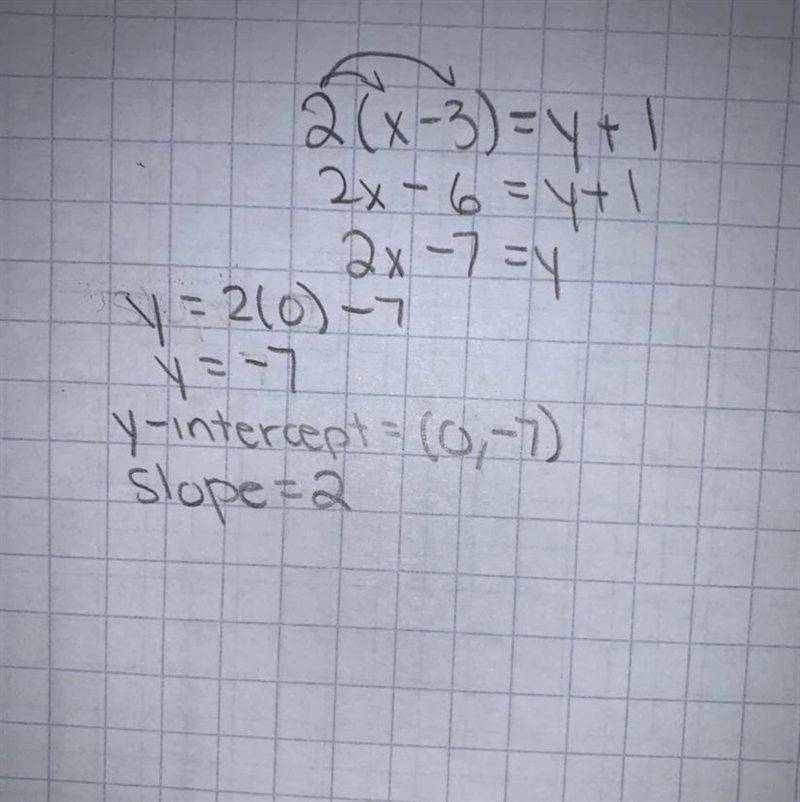 2(x-3)=y+1
2x-6=y+1
2x-7=y
y=2(0)-7
y=-7
y-intercept=(0,-7)
slope=2